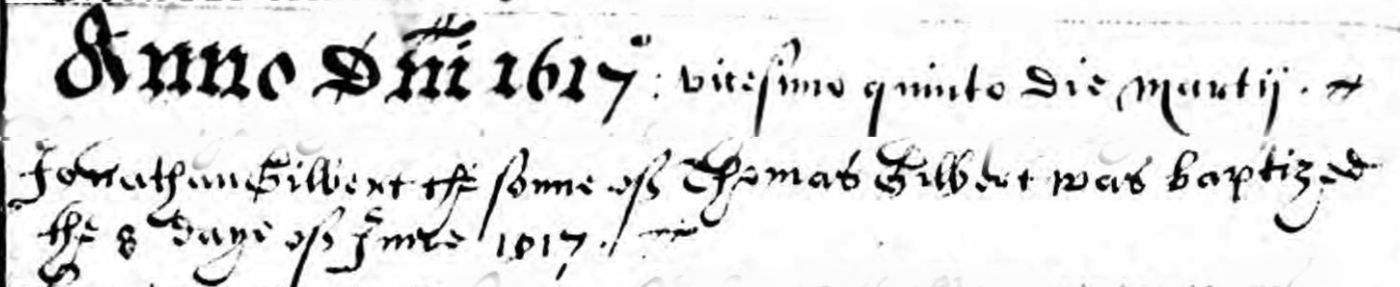 Anno Dni 1617°: vicesimo quinto die Martij.
Jonathan Gilbert the sonne of Thomas Gilbert was baptized
the 8 daye of June 1617.